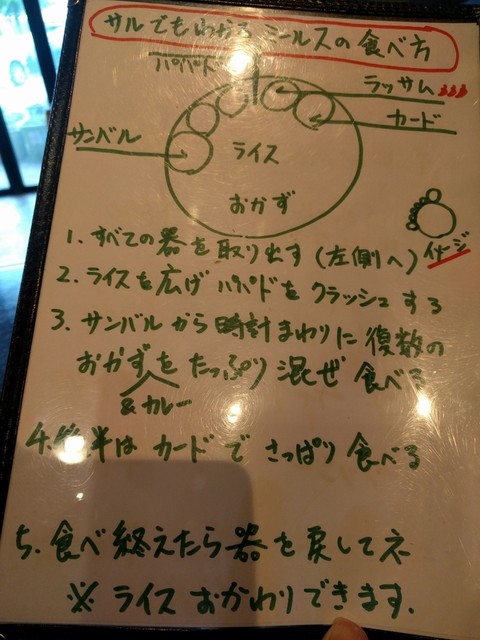 サルでもわかるミールスの食べ方
パパド
ラッサム
カード
サンバル
ライス
おかず
イメージ
1. すべての器を取り出す(左側へ)
2. ライスを広げパパドをクラッシュする
3. サンバルから時計まわりに復数の
おかずをたっぷり混ぜ食べる
&カレー
4. 後半はカードでさっぱり食べる
5. 食べ終えたら器を戻してネ
※ライスおかわりできます.